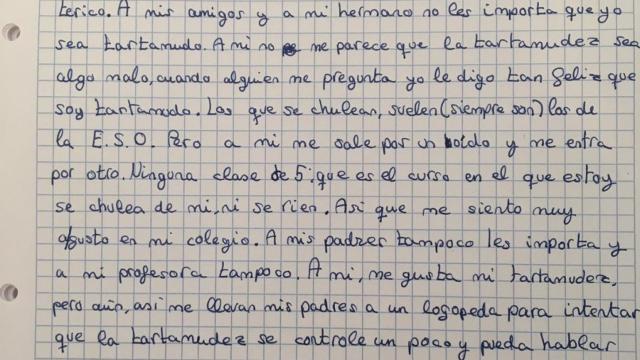 terico. A mis amigos y a mi hermano no les importa que yo
sea tartamudo. A mi no me parece que la tartamudez sea
algo malo, cuando alguien me pregunta yo le digo tan feliz que
soy tartamudo. Los que se chulean, suelen (siempre son) los de
la E.S.O. Pero a mi me sale por un oido y me entra
por otro. Ninguna clase de 5: que es el curso en el que estoy
se chulea de mi, ni se rien. Asi que me siento muy
agusto en mi colegio. A mis padres tampoco les importa y
a mi profesora tampoco. A mi, me gusta mi tartamudez,
pero aún, asi me llevan mis padres a un logopeda para intentar
que la tartamudez se controle un poco y pueda hablar